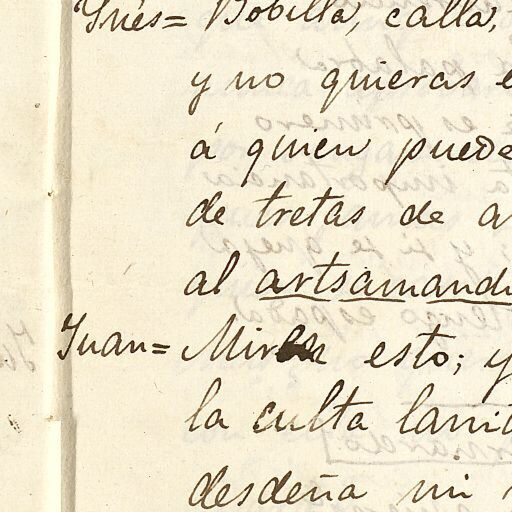 Inés= Bobilla, calla,
y no quieras
á quien puede
de tretas de
al artsamand
Juan= Miren esto; y
la culta
desdeña mi